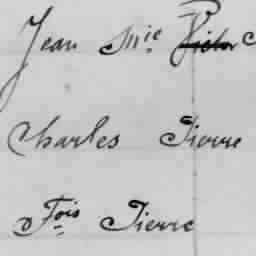 Jean Mie
Charles Pierre
Fois Pierre